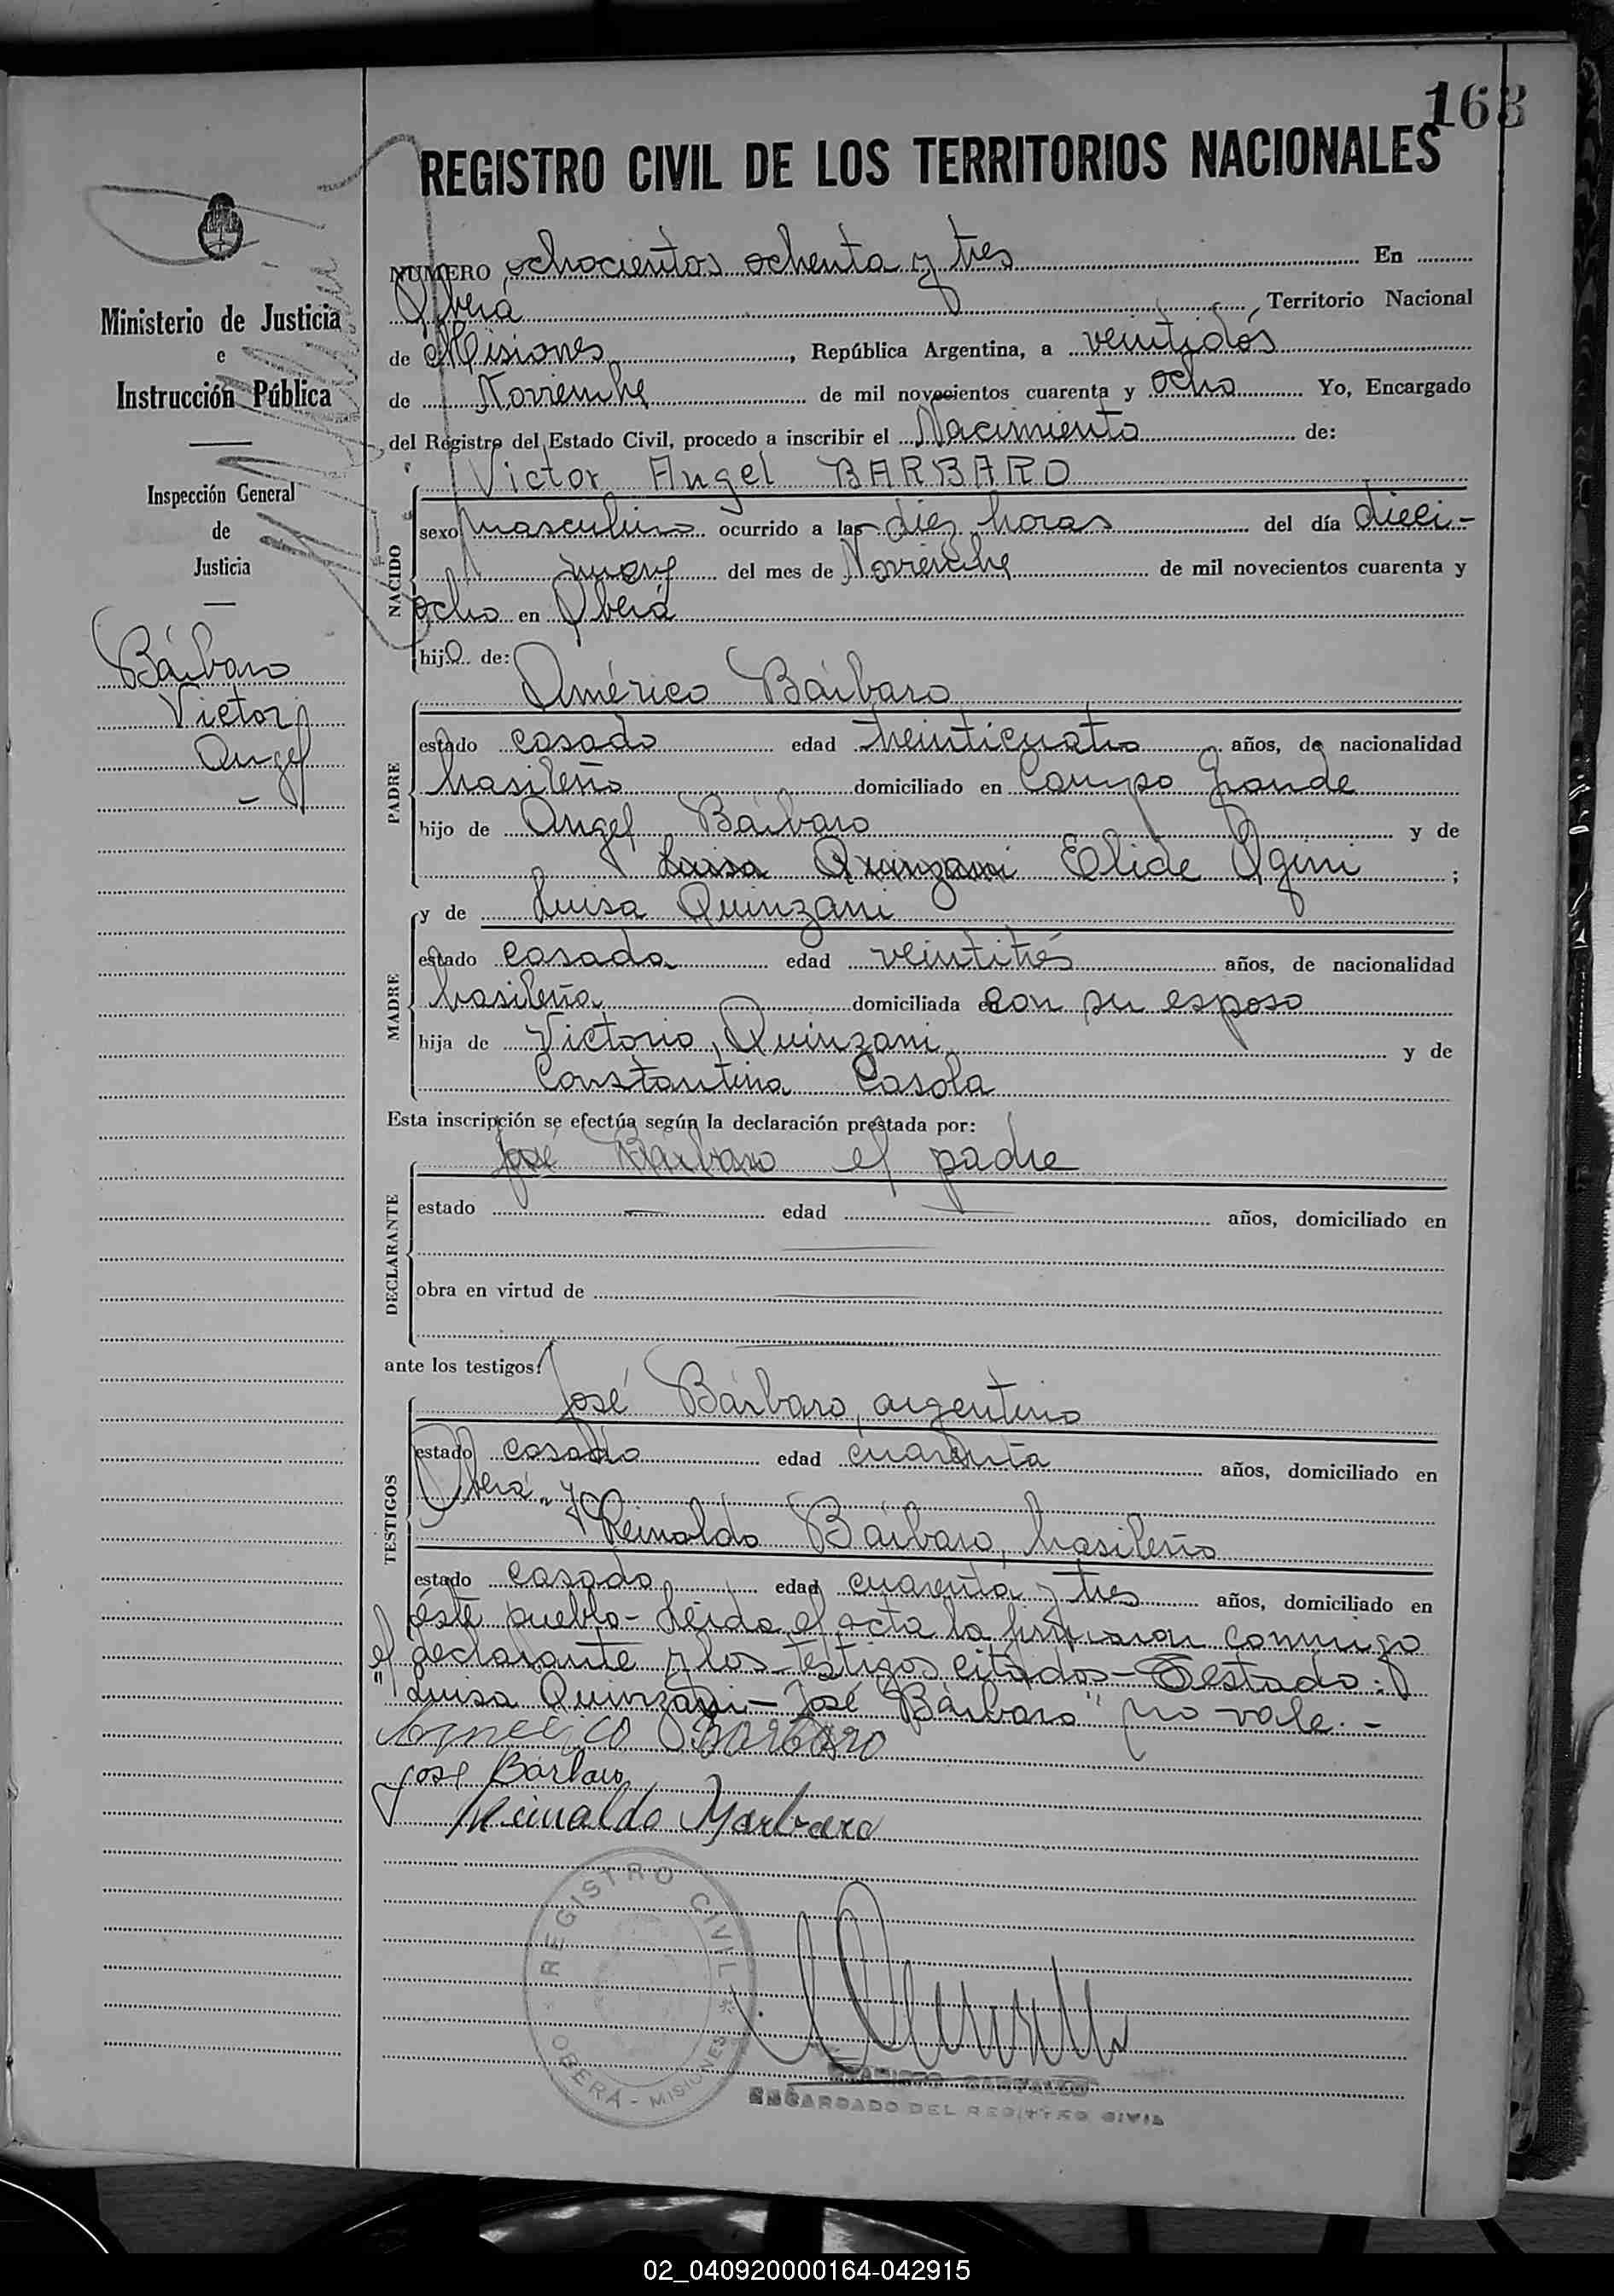 163
REGISTRO CIVIL DE LOS TERRITORIOS NACIONALES
NUMERO ochocientos ochenta y tres En
Oberá Territorio Nacional
de Misiones, República Argentina, a veintidós
de Noviembre de mil novecientos cuarenta y ocho Yo, Encargado
del Registro del Estado Civil, procedo a inscribir el Nacimiento de:
Victor Angel BARBARO
NACIDO
sexo masculino ocurrido a las diez horas del día dieci-
nueve del mes de Noviembre de mil novecientos cuarenta y
ocho en Oberá
hijo de:
Américo Bárbaro
PADRE
estado casado edad veinticuatro años, de nacionalidad
brasileño domiciliado en Campo Grande
hijo de Angel Bárbaro y de
Luisa Quinzani Elide Ogini ;
MADRE
y de Luisa Quinzani
estado casada edad veintitrés años, de nacionalidad
brasileña domiciliada en con su esposo
hija de Victorio Quinzani y de
Constantina Casola
Esta inscripción se efectúa según la declaración prestada por:
José Bárbaro el padre
DECLARANTE
estado — edad — años, domiciliado en
obra en virtud de
ante los testigos:
José Bárbaro, argentino
TESTIGOS
estado casado edad cuarenta años, domiciliado en
Oberá.- y
Reinoldo Bárbaro, brasileño
estado casado edad cuarenta y tres años, domiciliado en
éste pueblo - Leída el acta la firmaron conmigo
el declarante y los testigos citados - Testado:
"Luisa Quinzani - José Bárbaro" no vale.-
Americo Barbaro
Jose Bárbaro
Reinaldo Barbaro
REGISTRO CIVIL
OBERÁ - MISIONES
ENCARGADO DEL REGISTRO CIVIL
Ministerio de Justicia
e
Instrucción Pública
Inspección General
de
Justicia
Bárbaro
Victor
Angel
02_040920000164-042915